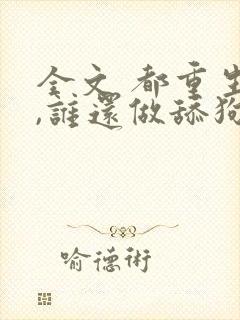 全文 都重生
,誰還做舔狗
喻德術